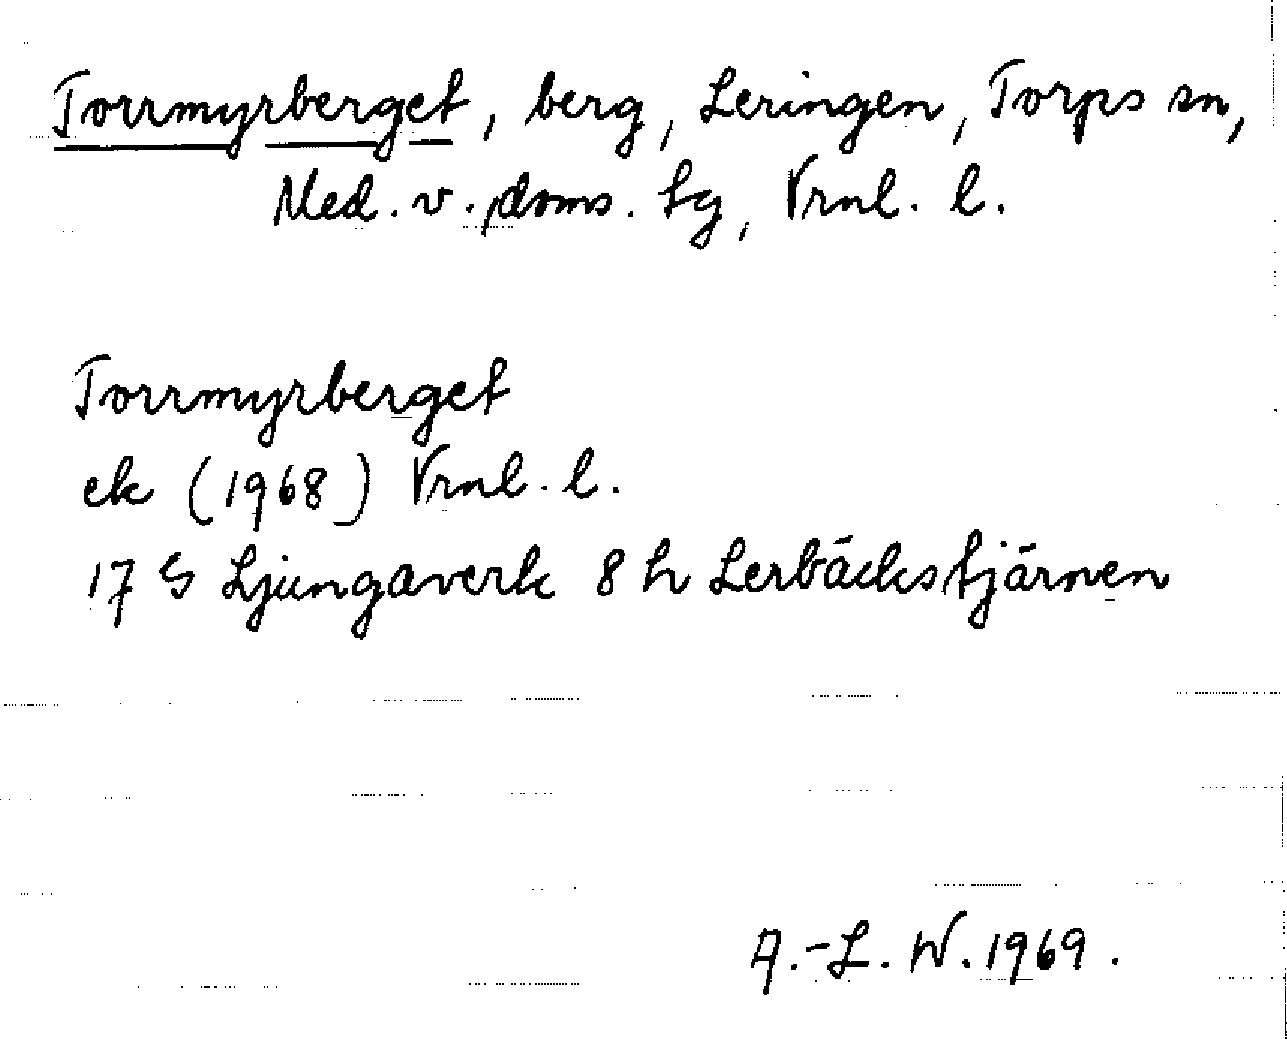 Torrmyrberget, berg, Leringen, Torps sn,
Med. v. doms. tg, Vrnl. l.
Torrmyrberget
ek (1968) Vrnl. l.
17 G Ljungaverk 8 h Lerbäckstjärnen
A.-L. W. 1969.